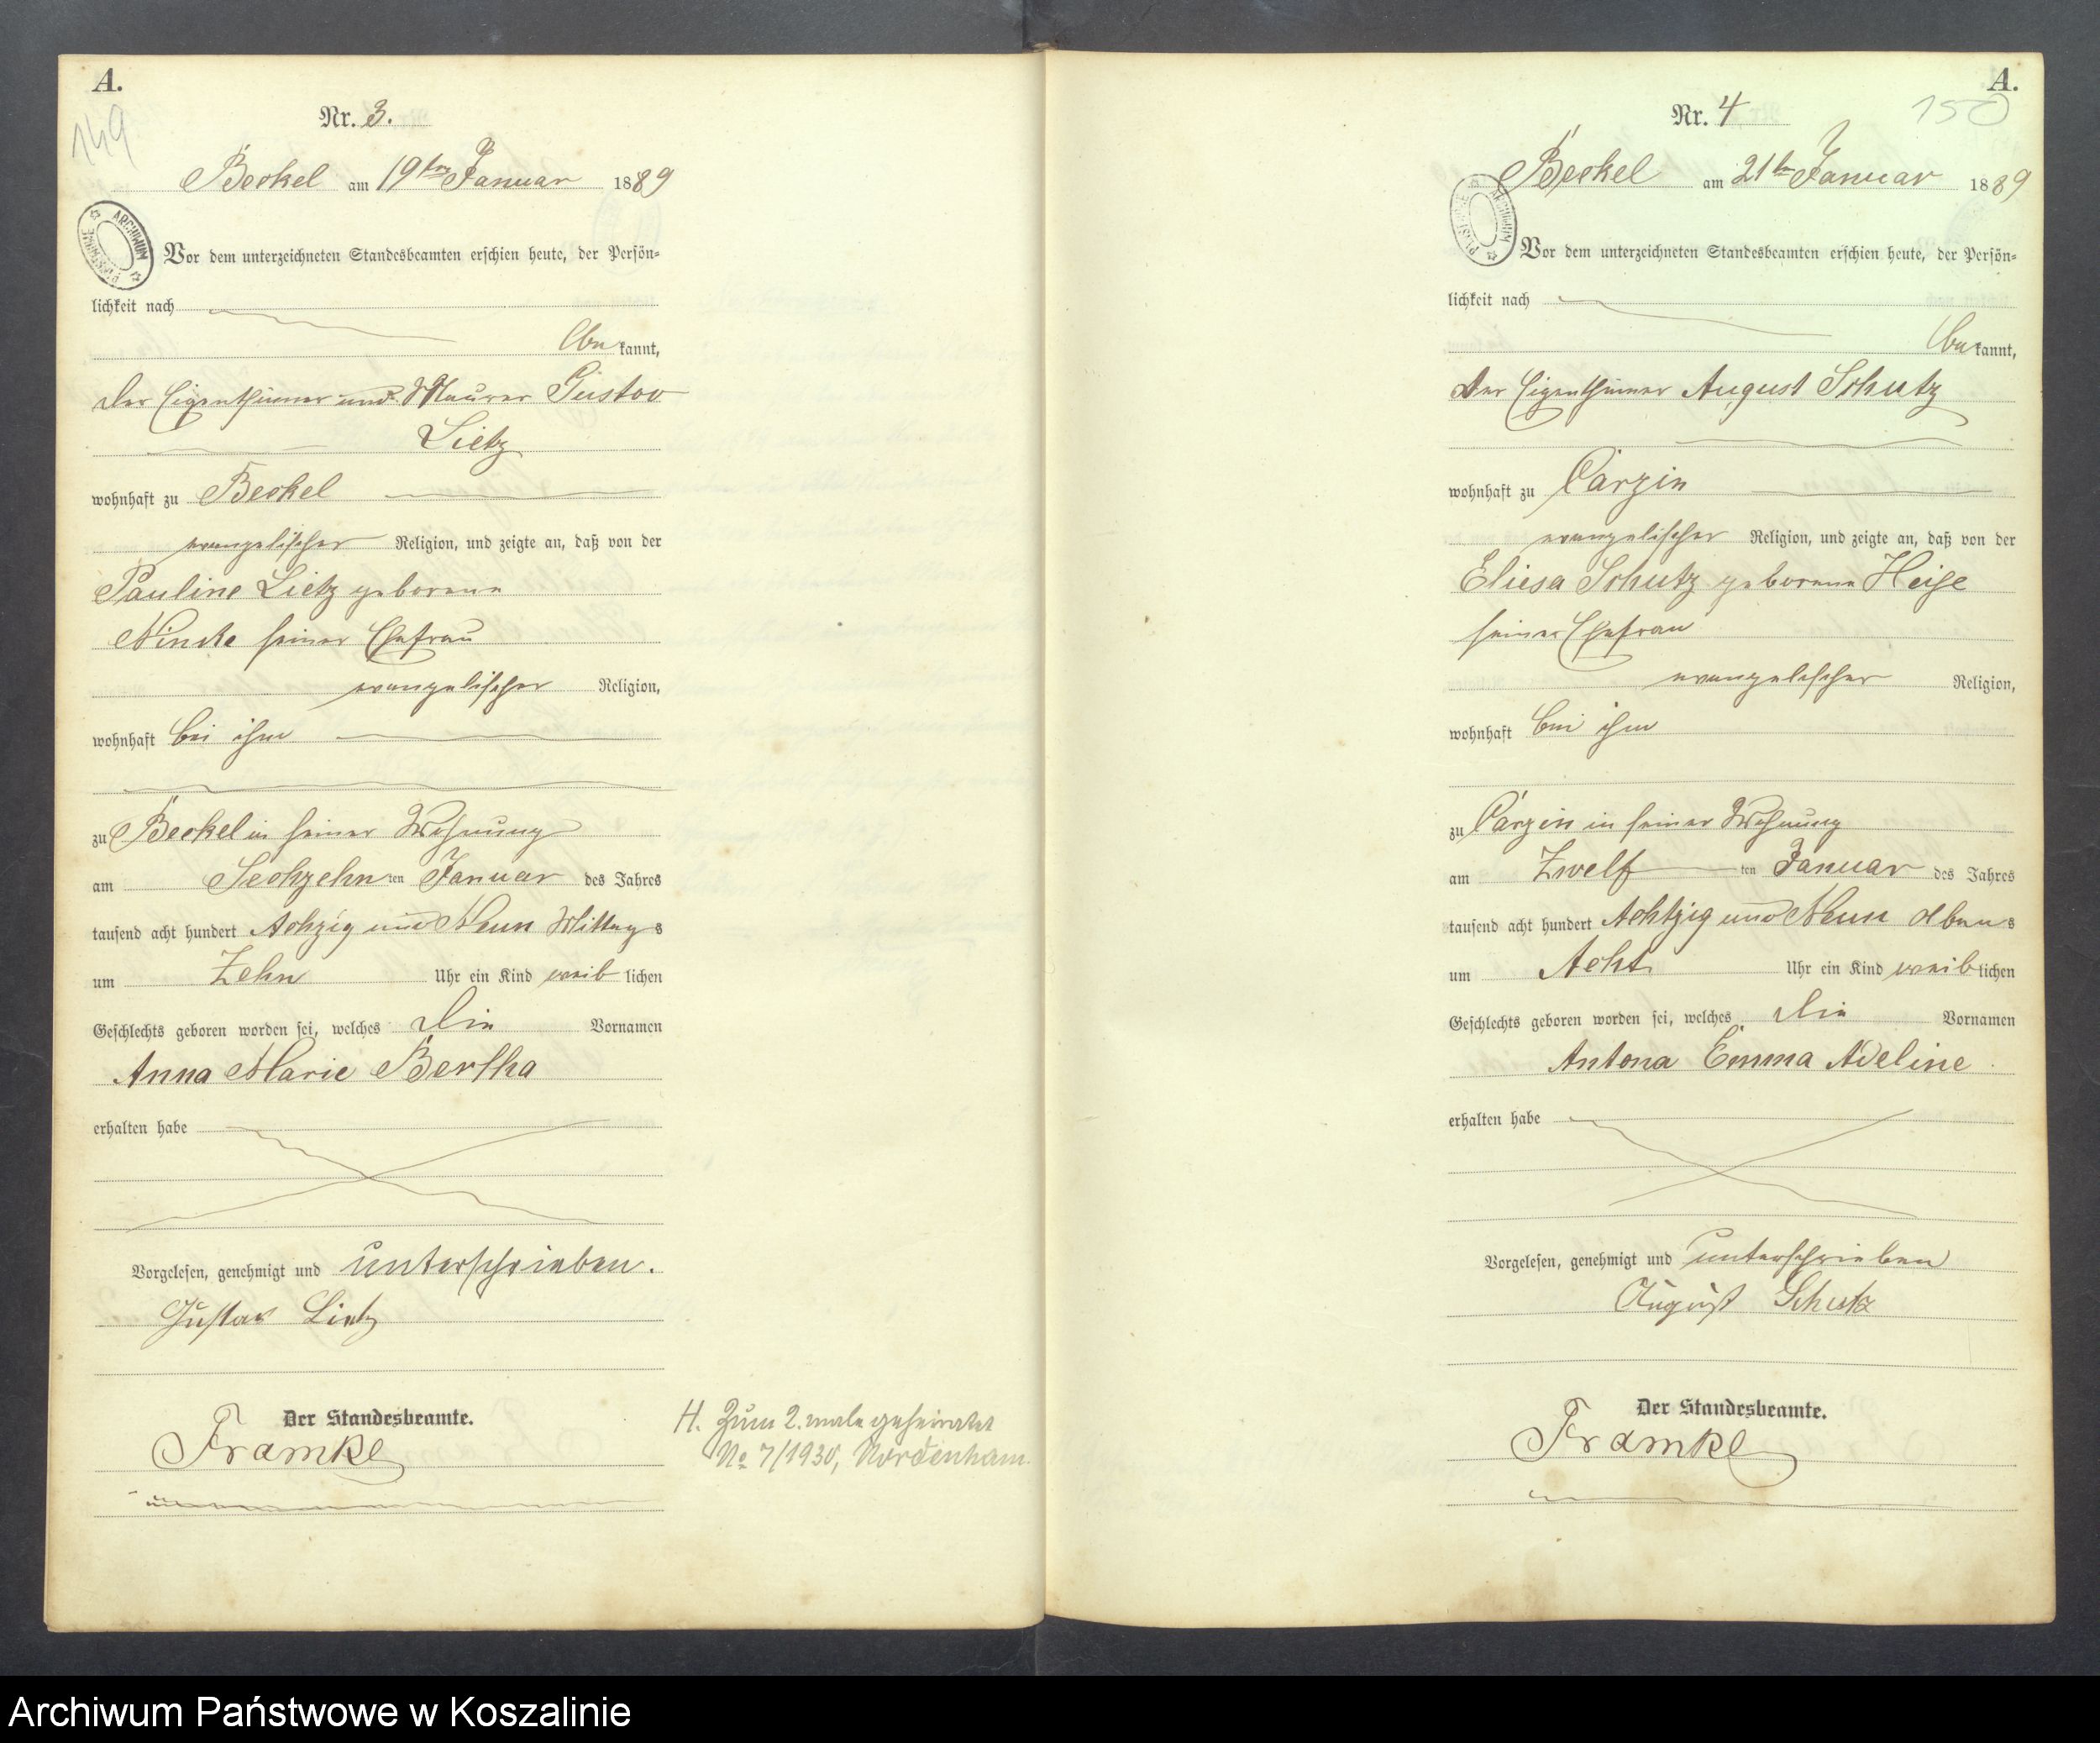 A.
149
Nr. 3.
Beckel am 19ten Januar 1889
ARCHIWUM PAŃSTWOWE
Vor dem unterzeichneten Standesbeamten erschien heute, der Persön-
lichkeit nach
bekannt,
der Eigenthümer und Maurer Gustav
Lietz
wohnhaft zu Beckel
evangelischer Religion, und zeigte an, daß von der
Pauline Lietz geborene
seiner Ehefrau
evangelischer Religion,
wohnhaft bei ihm
zu Beckel in seiner Wohnung
am Sechzehn ten Januar des Jahres
tausend acht hundert Achzig und Neun Mittags
um Zehn Uhr ein Kind weiblichen
Geschlechts geboren worden sei, welches die Vornamen
Anna Marie Bertha
erhalten habe
Vorgelesen, genehmigt und unterschrieben.
Gustav Lietz
Der Standesbeamte.
Framke
H. Zum 2. male geheiratet
No 7/1930, Nordenham.
A.
150
Nr. 4
Beckel am 21ten Januar 1889
Vor dem unterzeichneten Standesbeamten erschien heute, der Persön-
lichkeit nach
bekannt,
der Eigenthümer August Schutz
wohnhaft zu Carzin
evangelischer Religion, und zeigte an, daß von der
Eliesa Schutz geborene Heise
seiner Ehefrau
evangelischer Religion,
wohnhaft bei ihm
zu Carzin in seiner Wohnung
am Zwelf ten Januar des Jahres
tausend acht hundert Achtzig und Neun Abens
um Acht Uhr ein Kind weiblichen
Geschlechts geboren worden sei, welches die Vornamen
Antona Emma Adeline
erhalten habe
Vorgelesen, genehmigt und unterschrieben
August Schutz
Der Standesbeamte.
Framke
Archiwum Państwowe w Koszalinie